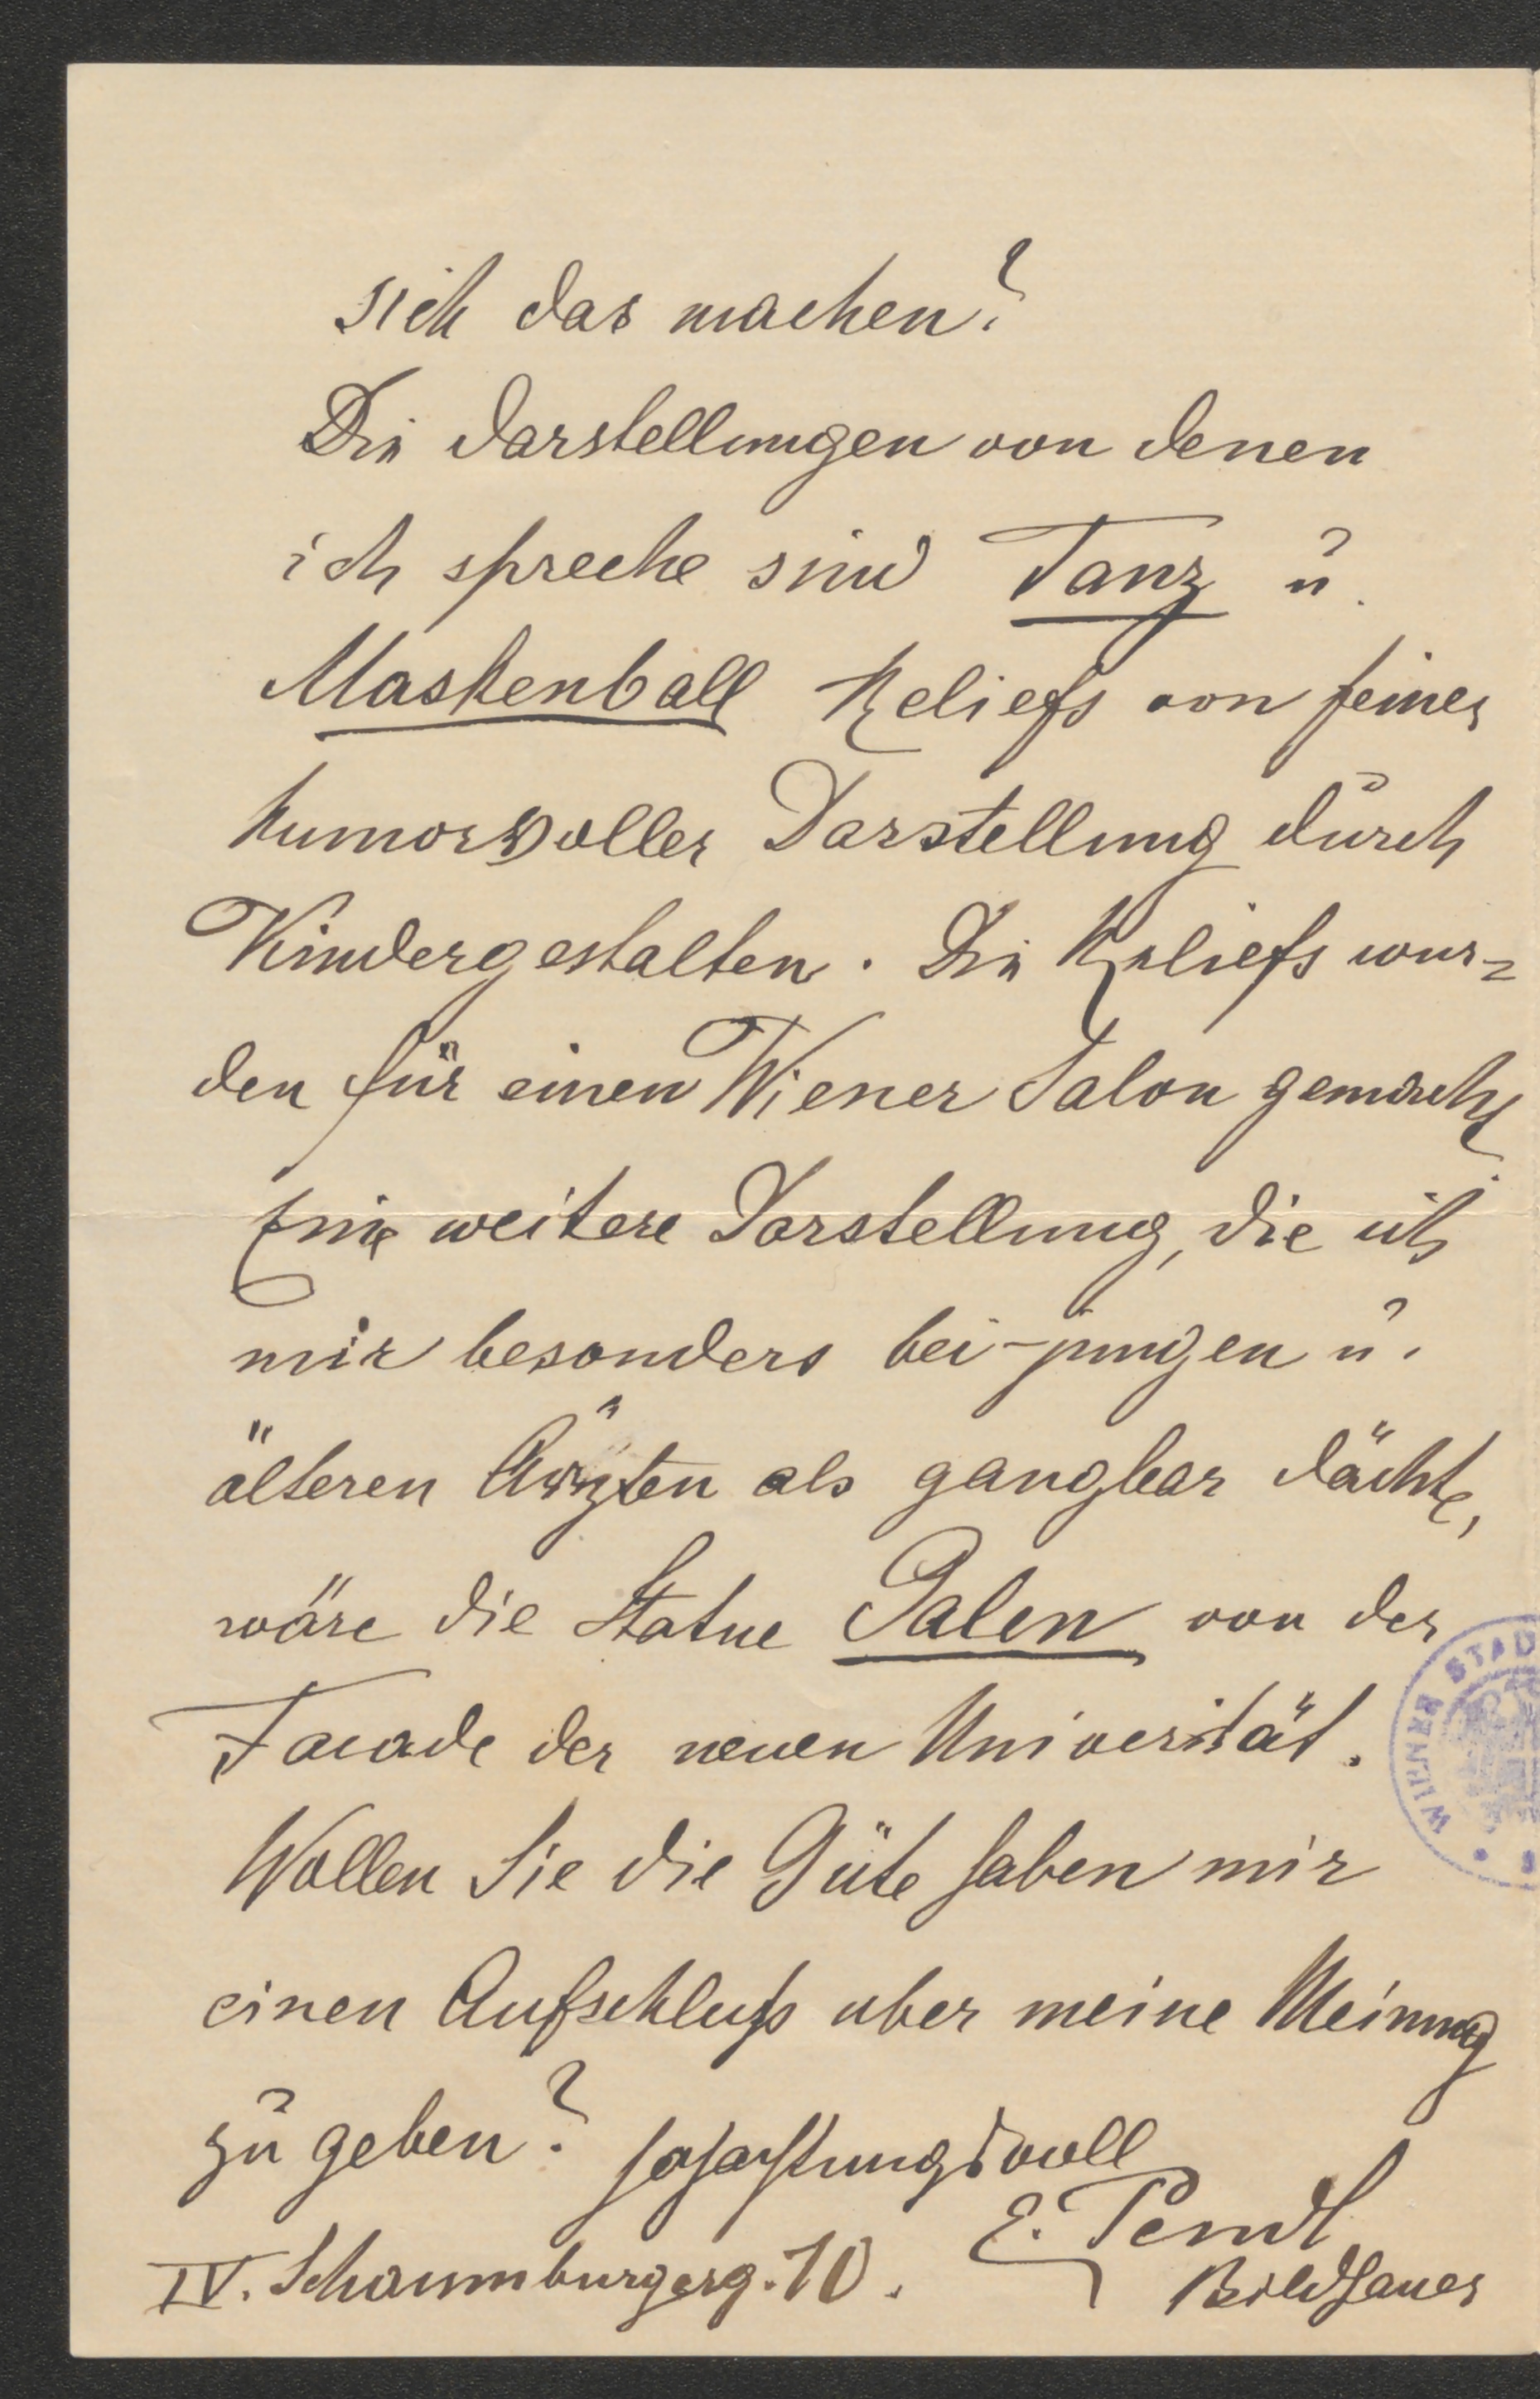 sich das machen?
Die Darstellungen von denen
ich spreche sind Tanz u.
Maskenball Reliefs von feiner
humorvoller Darstellung durch
Kindergestalten. Die Reliefs wur=
den für einen Wiener Salon gemacht.
Eine weitere Darstellung, die ich
mir besonders bei jungen u.
älteren Ärzten als gangbar dächte,
wäre die Statue Galen von der
Facade der neuen Univerität.
Wollen Sie die Güte haben mir
einen Aufschluß uber meine Meinung
zu geben? Hochachtungsvoll
E. Pendl
IV. Schaumburgerg. 10. Bildhauer
WIENER STAD